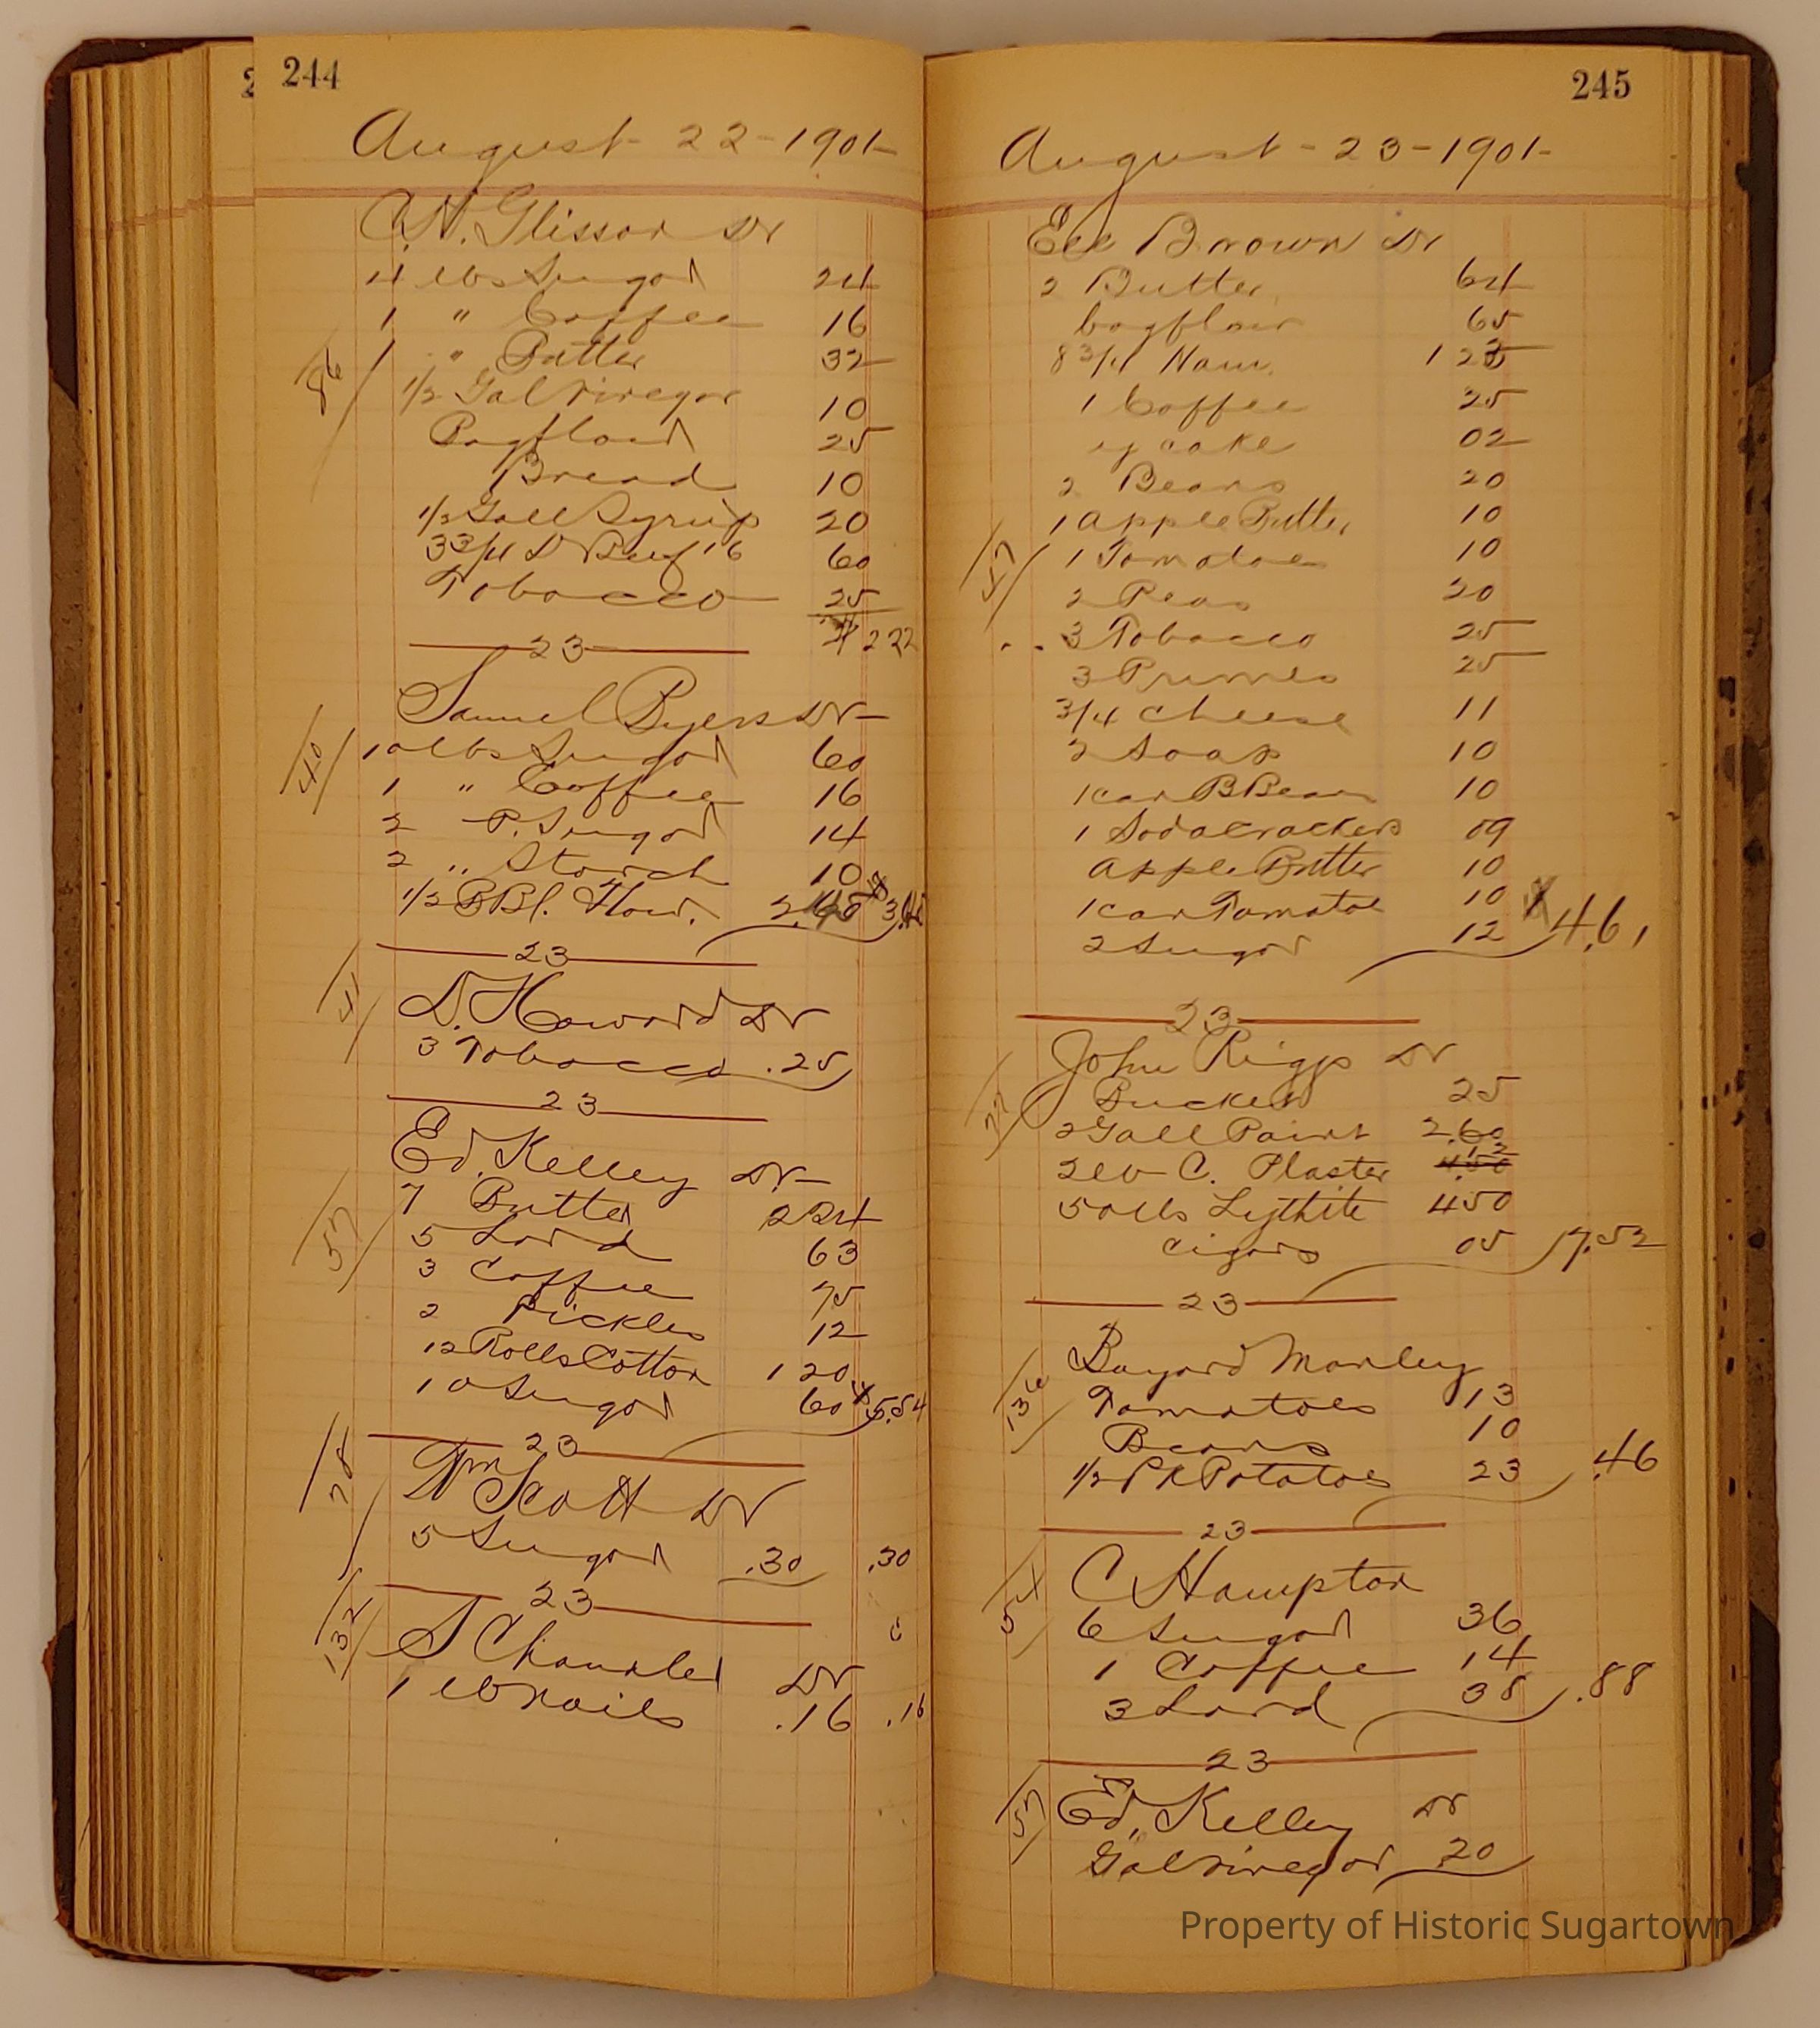 2
244
August 22-1901-
C.H. Glisson Dr
4 lbs Sugar 24
1 " Coffee 16
86 1 " Butter 32
1/2 Gal Vinegar 10
Bagflour 25
Bread 10
1/2 Gall Syrup 20
3 3/4 D Beef 16 60
Tobacco 25
$ 2 22
23
Samuel Byers Dr
40 10 lbs Sugar 60
1 " Coffee 16
2 P. Sugar 14
2 " Starch 10
1/2 BBl. Flour.
23
41 D. Howard Dr
3 Tobacco .25
23
Ed. Kelley Dr
57 7 Butter 2 24
5 Lard 63
3 Coffee 75
2 Pickles 12
12 Rolls Cotton 1 20
10 Sugar 60 $5.54
23
28 Wm Scott Dr
5 Sugar .30 .30
23
132 S Chandler Dr
1 lb nails .16 .16
245
August-23-1901-
Brown Dr
2 Butter 64
bagflour 65
8 3/4 Ham
1 Coffee 25
y cake 02
2 Beans 20
1 apple Butter 10
57 1 Tomatoes 10
2 Peas 20
3 Tobacco 25
3 Prunes 25
3/4 cheese 11
2 Soap 10
1 can B Bean 10
1 Sodacrackers 09
apple Butter 10
1 can Tomatoe 10
2 Sugar 12 4.61
23
John Riggs Dr
22 Bucket 25
2 Gall Paint 2.60
2 lb C. Plaster 12
50 lbs Lythite 4 50
cigars 05 7.52
23
Bayard Manley
136 Tomatoes 13
Beans 10
1/2 Pk Potatoes 23 .46
23
54 C Hampton
6 Sugar 36
1 Coffee 14
3 Lard 38 .88
23
57 Ed, Kelley Dr
Gal Vinegar 20
Property of Historic Sugartown